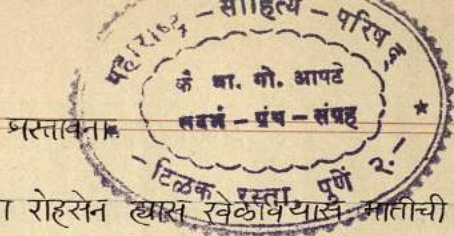 महाराष्ट्र - साहित्य - परिषद्
कै वा. गो. आपटे
संदर्भ - ग्रंथ - संग्रह
प्रस्तावना.
- टिळक रस्ता पुणें २. -
रोहसेन ह्यास खेळावयास मातीची